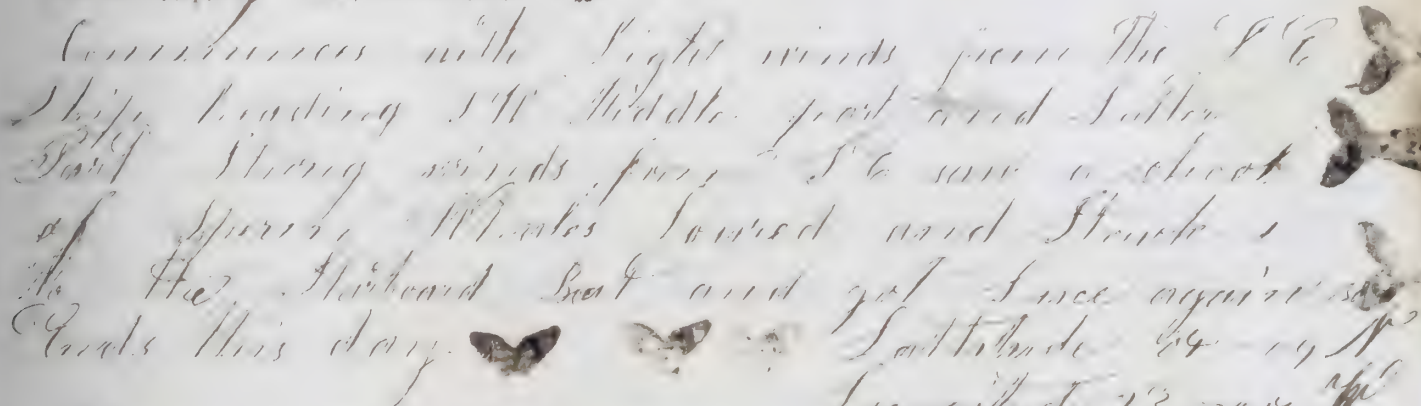 Commences with Light winds from the S E
Ship heading S W Middle part and Latter
Part Strong winds from S E saw a shoal
of Sperm Whales Lowred and Struck 1
to the Starboard Boat and got Luce again
Ends this day Lattitude N